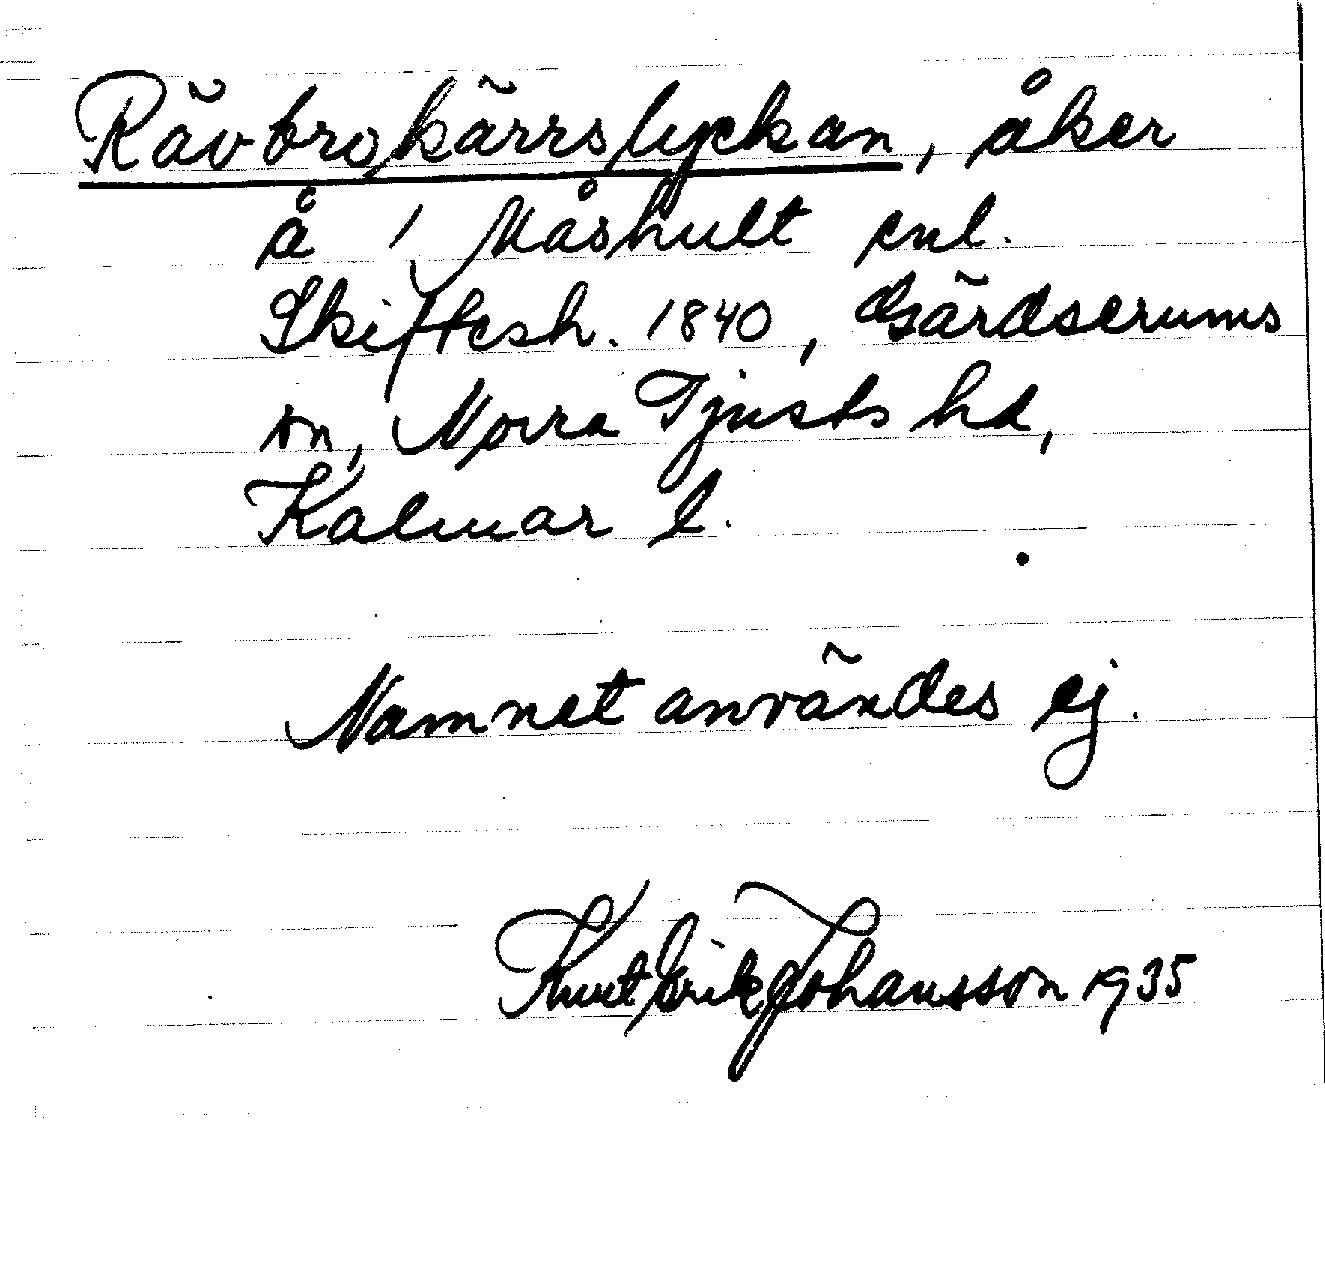 Rävbrokärrslyckan, åker
å / Måshult enl.
Skiftesh. 1840, Gärdserums
sn, Norra Tjusts hd,
Kalmar l.
Namnet användes ej.
Kurt Erik Johansson 1935